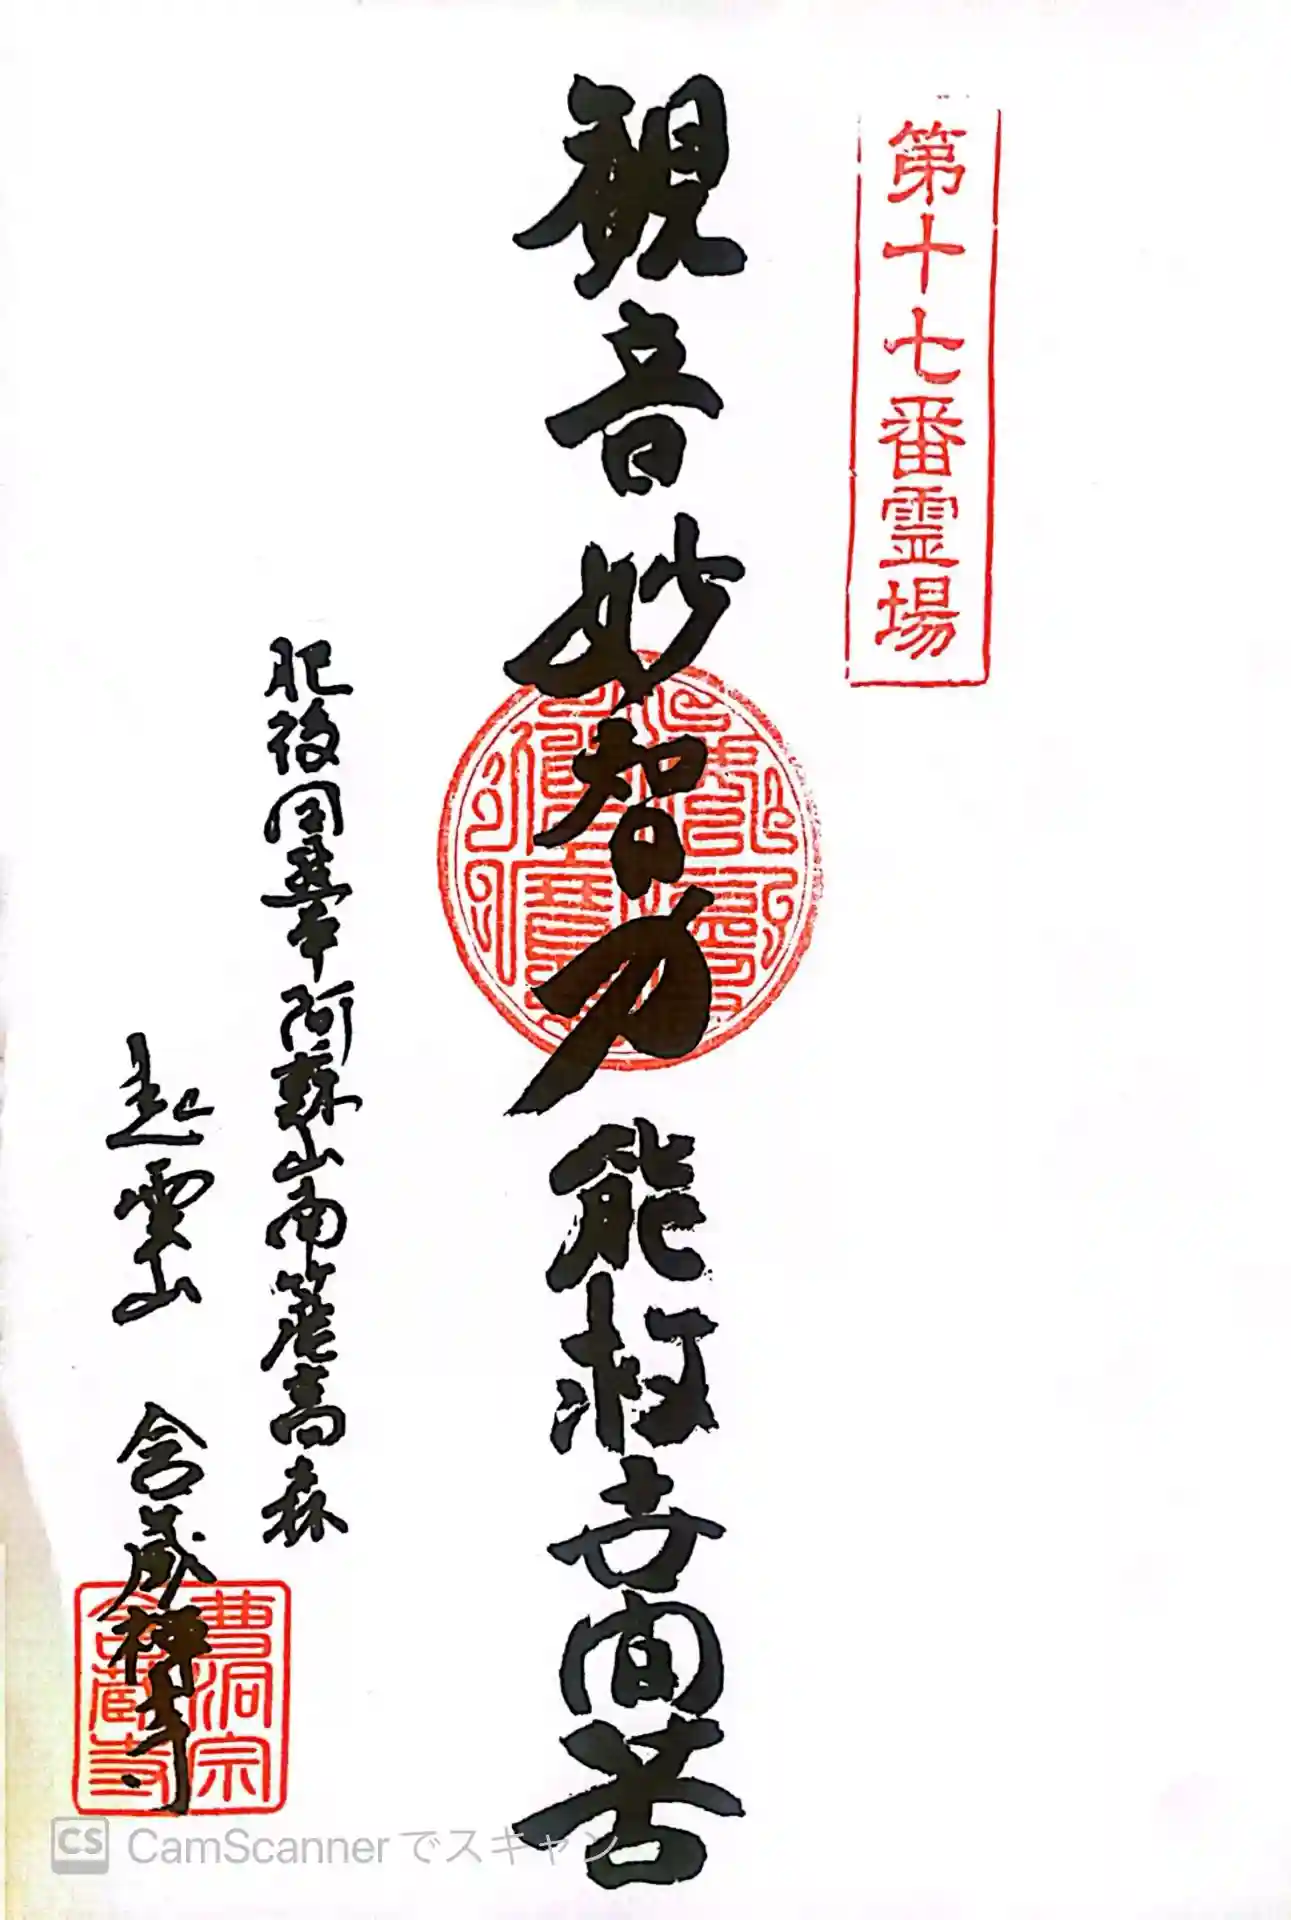 第十七番霊場
観音妙智力能救世間苦
肥後国 阿蘇山南 高森
起雲山 含蔵禅寺
曹洞宗
含蔵寺
CS CamScannerでスキャン